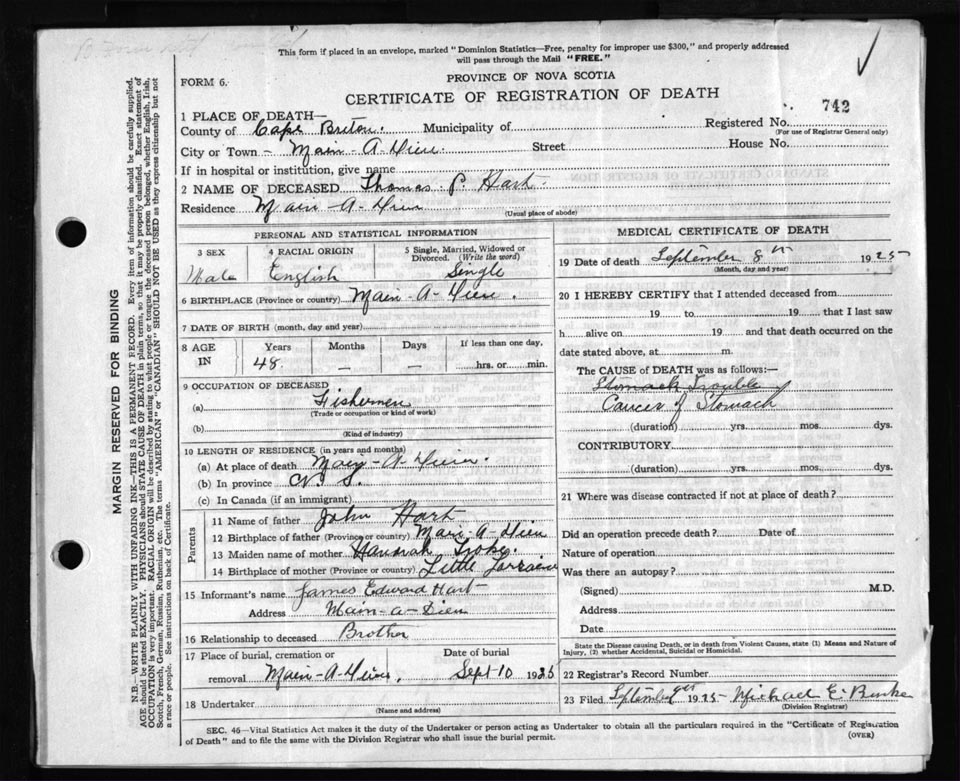 This form if placed in an envelope, marked "Dominion Statistics—Free, penalty for improper use $300," and properly addressed
will pass through the Mail "FREE."
FORM 6.
PROVINCE OF NOVA SCOTIA
CERTIFICATE OF REGISTRATION OF DEATH
742
1 PLACE OF DEATH—
County of Cape Breton. Municipality of
Registered No.
(For use of Registrar General only)
City or Town - Main-A-Dieu. Street House No.
If in hospital or institution, give name
2 NAME OF DECEASED Thomas P Hart
Residence Main-A-Dieu
(Usual place of abode)
PERSONAL AND STATISTICAL INFORMATION
3 SEX 4 RACIAL ORIGIN 5 Single, Married, Widowed or
Divorced. (Write the word)
Male English Single
6 BIRTHPLACE (Province or country) Main-A-Dieu.
7 DATE OF BIRTH (month, day and year)
8 AGE IN Years Months Days If less than one day,
48. — — hrs. or min.
9 OCCUPATION OF DECEASED
(a) Fishermen
(Trade or occupation or kind of work)
(b)
(Kind of industry)
10 LENGTH OF RESIDENCE (in years and months)
(a) At place of death Main-A-Dieu.
(b) In province N. S.
(c) In Canada (if an immigrant)
Parents
11 Name of father John Hart
12 Birthplace of father (Province or country) Main-A-Dieu
13 Maiden name of mother Hannah
14 Birthplace of mother (Province or country) Little Lorraine
15 Informant's name James Edward Hart
Address Main-a-Dieu
16 Relationship to deceased Brother
17 Place of burial, cremation or Date of burial
removal Main-A-Dieu Sept 10 1925
18 Undertaker
(Name and address)
MEDICAL CERTIFICATE OF DEATH
19 Date of death September 8th 1925
(Month, day and year)
20 I HEREBY CERTIFY that I attended deceased from
19 to 19 that I last saw
h alive on 19 and that death occurred on the
date stated above, at m.
The CAUSE of DEATH was as follows:—
Stomach Trouble
Cancer of Stomach
(duration) yrs. mos. dys.
CONTRIBUTORY
(duration) yrs. mos. dys.
21 Where was disease contracted if not at place of death?
Did an operation precede death? Date of
Nature of operation
Was there an autopsy?
(Signed) M.D.
Address
Date
State the Disease causing Death, or in death from Violent Causes, state (1) Means and Nature of
Injury, (2) whether Accidental, Suicidal or Homicidal.
22 Registrar's Record Number
23 Filed September 9th 1925 Michael E. Burke
(Division Registrar)
SEC. 46—Vital Statistics Act makes it the duty of the Undertaker or person acting as Undertaker to obtain all the particulars required in the "Certificate of Registration
of Death" and to file the same with the Division Registrar who shall issue the burial permit.
(OVER)
MARGIN RESERVED FOR BINDING
N.B.—WRITE PLAINLY WITH UNFADING INK—THIS IS A PERMANENT RECORD. Every item of information should be carefully supplied.
AGE should be stated EXACTLY. PHYSICIANS should STATE CAUSE OF DEATH in plain terms, so that it may be properly classified. Exact statement of
OCCUPATION is very important. RACIAL ORIGIN will be described by stating to what people or tongue the deceased person belonged, whether English, Irish,
Scotch, French, German, Russian, Ruthenian, etc. The terms "AMERICAN" or "CANADIAN" SHOULD NOT BE USED as they express citizenship but not
a race or people. See instructions on back of Certificate.